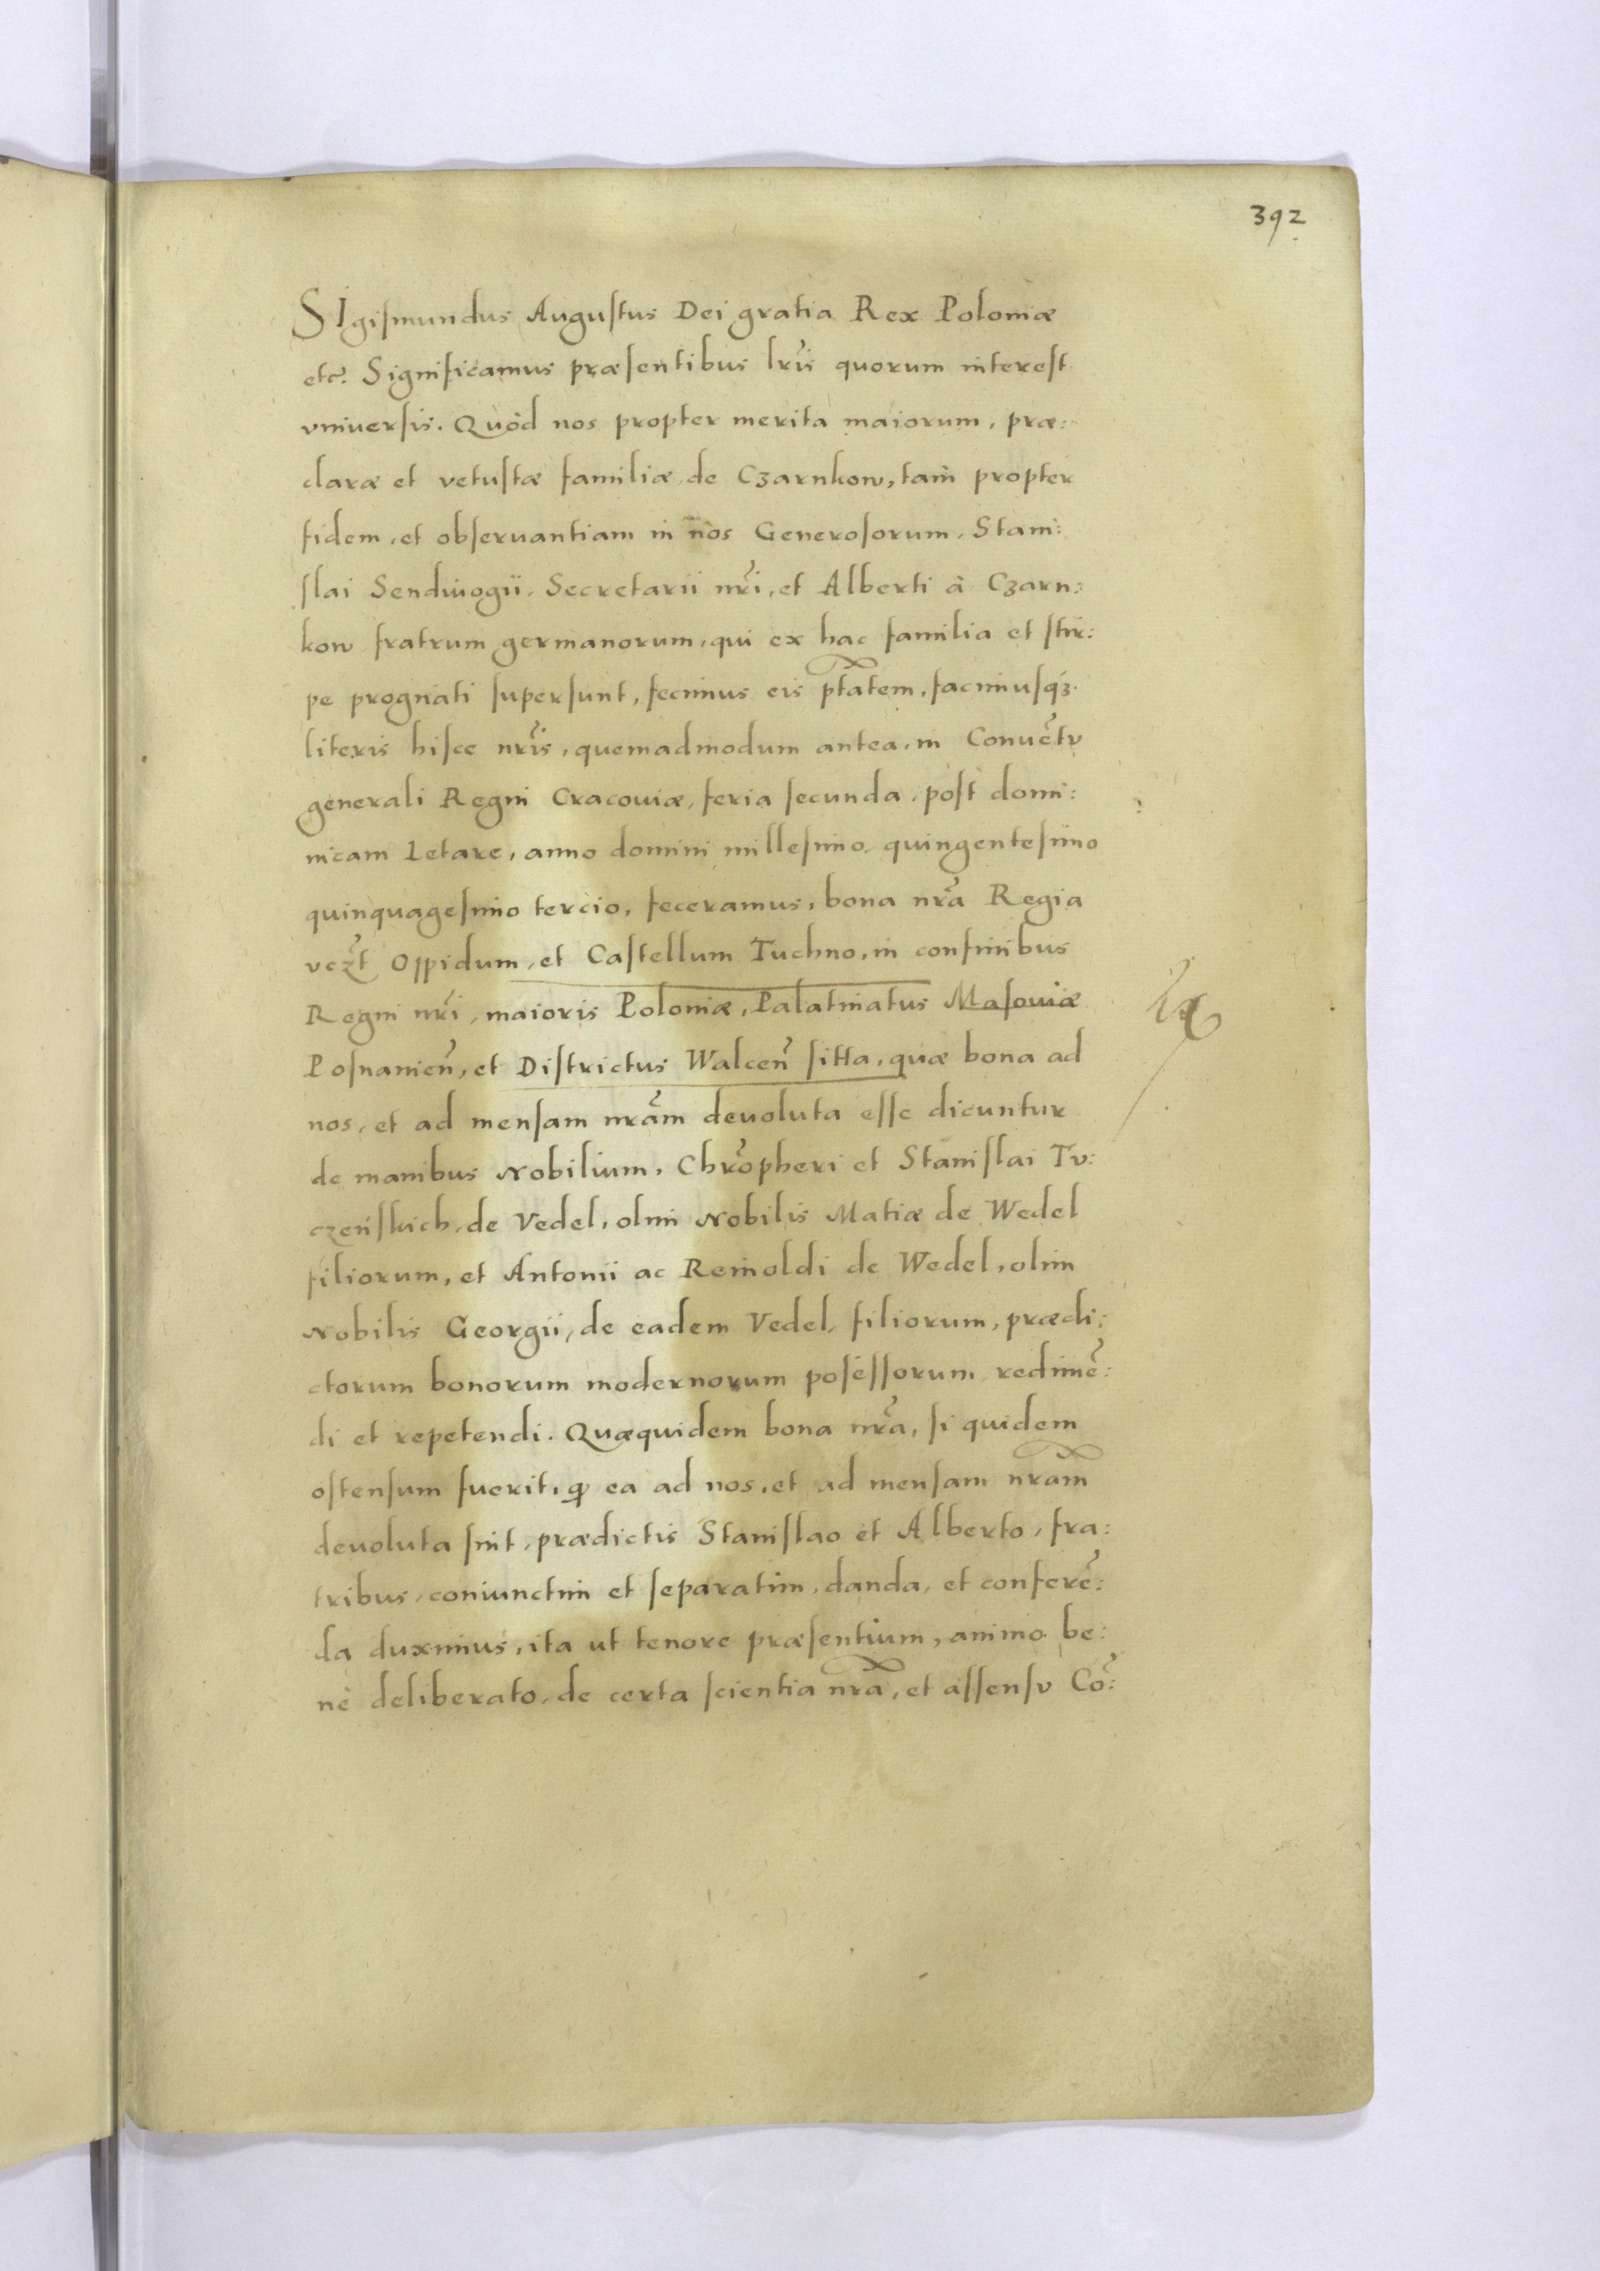 392
SIgiſmundus Auguſtus Dei gratia Rex Poloniæ
etc̃. Significamus præſentibus lr̃is quorum intereſt
vniuerſis. Quòd nos propter merita maiorum, præ:
claræ et vetuſtæ familiæ de Czarnkow, tam propter
fidem, et obſeruantiam in nos Generoſorum, Stani:
ſlai Sendiuogii, Secretarii nr̃i, et Alberti à Czarn:
kow fratrum germanorum, qui ex hac familia et ſtir:
pe prognati ſuperſunt, fecimus eis pt̃atem, facimuſqꝫ
literis hiſce nr̃is, quemadmodum antea, in Conuẽtu
generali Regni Cracouiæ, feria ſecunda, poſt domi:
nicam Letare, anno domini milleſimo, quingenteſimo
quinquageſimo tercio, feceramus, bona nr̃a Regia
vcz̃t Oppidum, et Caſtellum Tuchno, in confinibus
Regni nr̃i, maioris Poloniæ, Palatinatus Maſouiæ
Poſnanien̄, et Diſtrictus Walcen̄ ſitta, quæ bona ad
nos, et ad menſam nr̃am deuoluta eſſe dicuntur
de manibus Nobilium, Chr̃opheri et Staniſlai Tu:
czenſkich, de Vedel, olim Nobilis Matiæ de Wedel
filiorum, et Antonii ac Reinoldi de Wedel, olim
Nobilis Georgii, de eadem Vedel, filiorum, prædi:
ctorum bonorum modernorum poſeſſorum redimẽ:
di et repetendi. Quæquidem bona nr̃a, ſi quidem
oſtenſum fuerit, ꝙ ea ad nos, et ad menſam nr̃am
deuoluta ſint, prædictis Staniſlao et Alberto, fra:
tribus, coniunctim et ſeparatim, danda, et conferẽ:
da duximus, ita ut tenore præſentium, animo be:
nè deliberato, de certa ſcientia nr̃a, et aſſenſu Cõ: